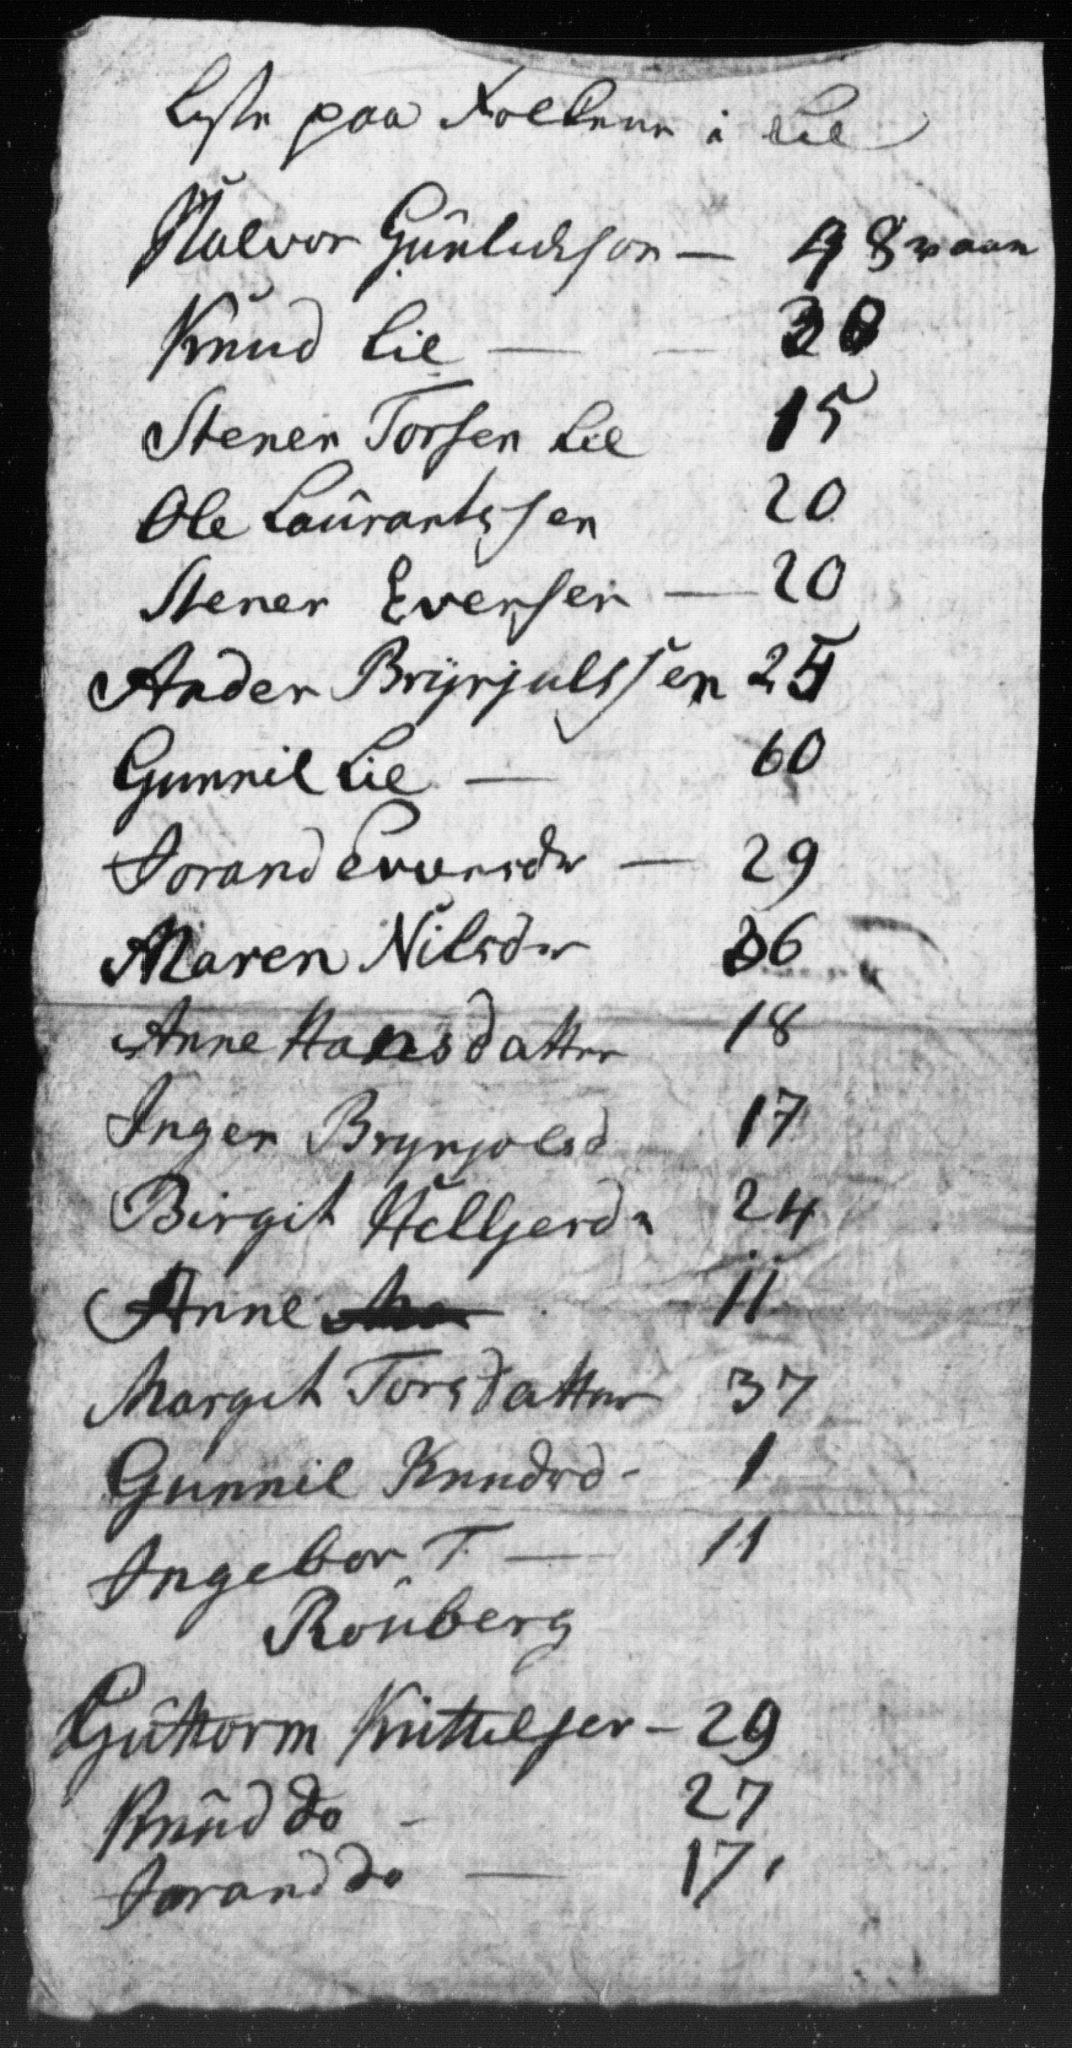 Liste paa Folkene i Lie
Halvor Gunlichson — 48 vaan
Knud Lie — — 30
Stener Torsen Lie 15
Ole Laûrantssen 20
Stener Eversen — 20
Ander Brynjulssen 25
Gunnil Lie — 60
Jorand Eversdr — 29
Maren Nilsdr 36
Anne Hansdatter 18
Inger Brynjolsd 17
Birgit Hellgesdr 24
Anne 11
Margit Torsdatter 37
Gunnil Knudsd - 1
Ingebor T. — 11
Rönberg
Guttorm Kittelsen — 29
Knûd do - 27
Jorand do — 17